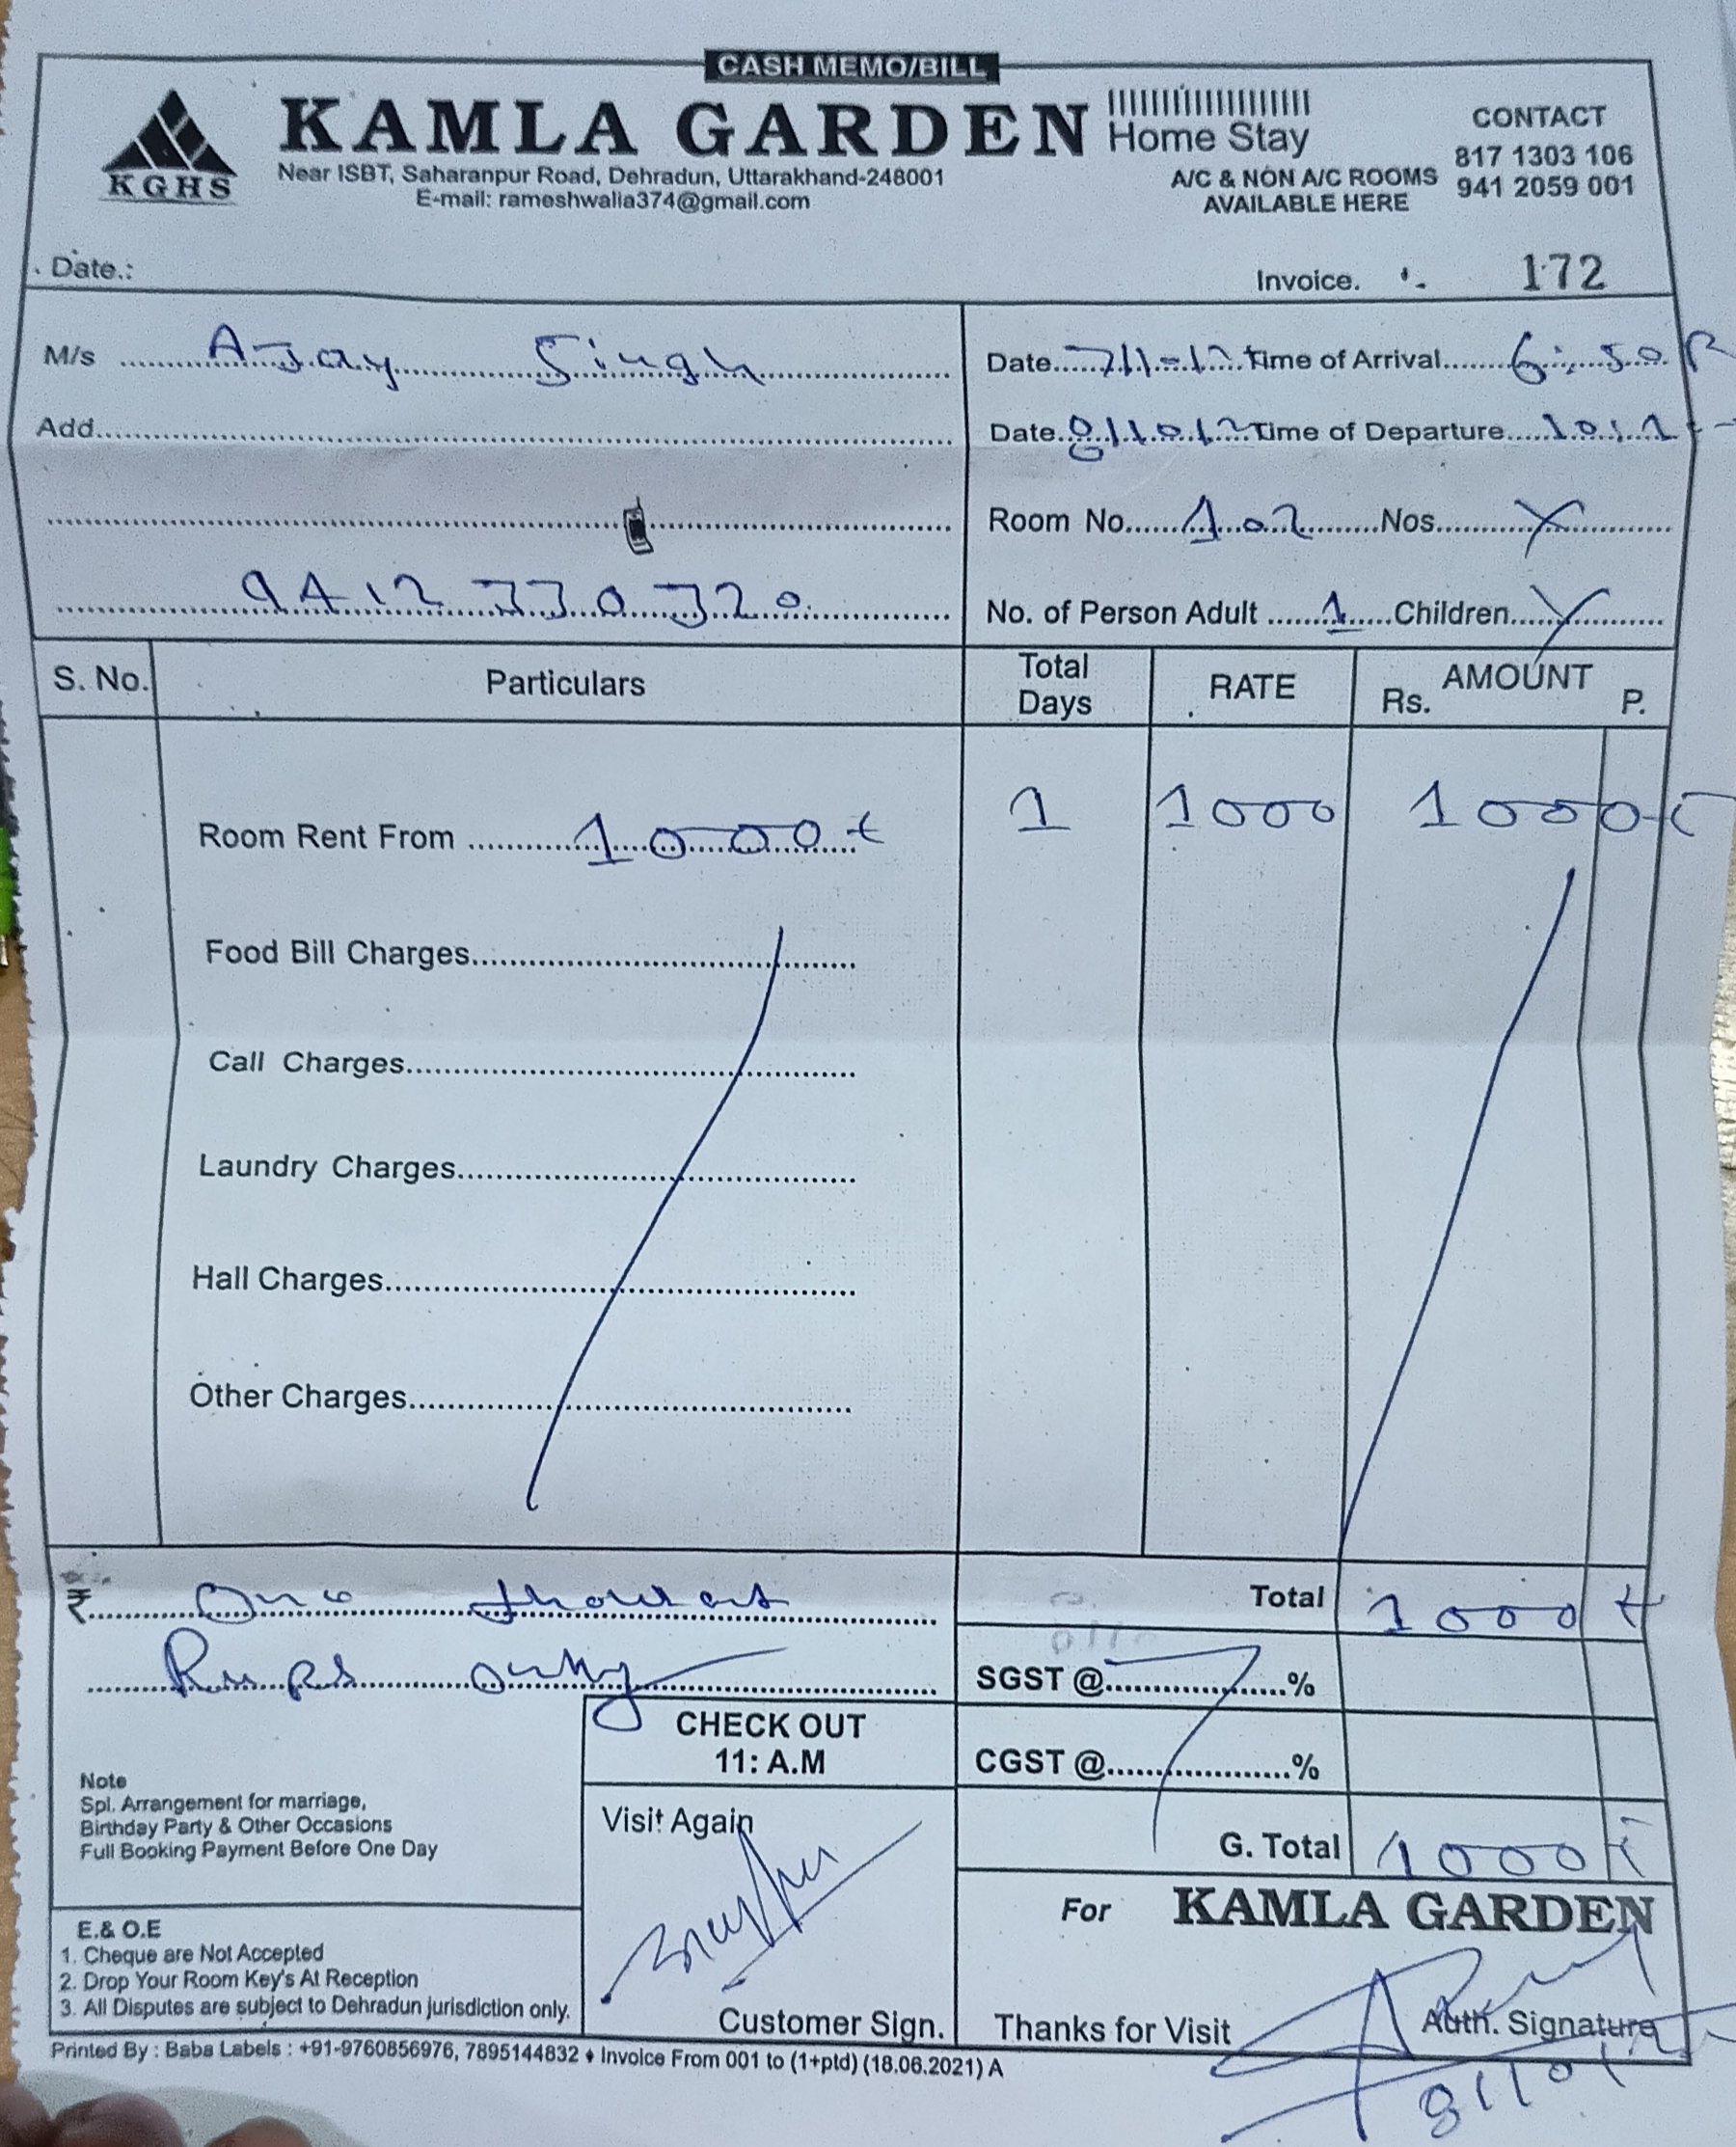 CASH MEMO/BILL
KGHS
KAMLA GARDEN Home Stay
Near ISBT, Saharanpur Road, Dehradun, Uttarakhand-248001
E-mail: rameshwalia374@gmail.com
A/C & NON A/C ROOMS
AVAILABLE HERE
CONTACT
817 1303 106
941 2059 001
Date.:
Invoice. 172
M/s Ajay Singh
Date Time of Arrival 6:50 P
Add.
Date Time of Departure
Room No. 102 Nos. X
9412330320
No. of Person Adult 1 Children X
S. No. Particulars Total Days RATE AMOUNT Rs. P.
Room Rent From 1000 1 1000 1000
Food Bill Charges
Call Charges
Laundry Charges
Hall Charges
Other Charges
₹ One
only
Total 1000
SGST @ %
CGST @ %
G. Total 1000
CHECK OUT
11: A.M
Note
Spl. Arrangement for marriage,
Birthday Party & Other Occasions
Full Booking Payment Before One Day
Visit Again
For KAMLA GARDEN
E.& O.E
1. Cheque are Not Accepted
2. Drop Your Room Key's At Reception
3. All Disputes are subject to Dehradun jurisdiction only.
Customer Sign.
Thanks for Visit Auth. Signature
Printed By : Baba Labels : +91-9760856976, 7895144832 ♦ Invoice From 001 to (1+ptd) (18.06.2021) A